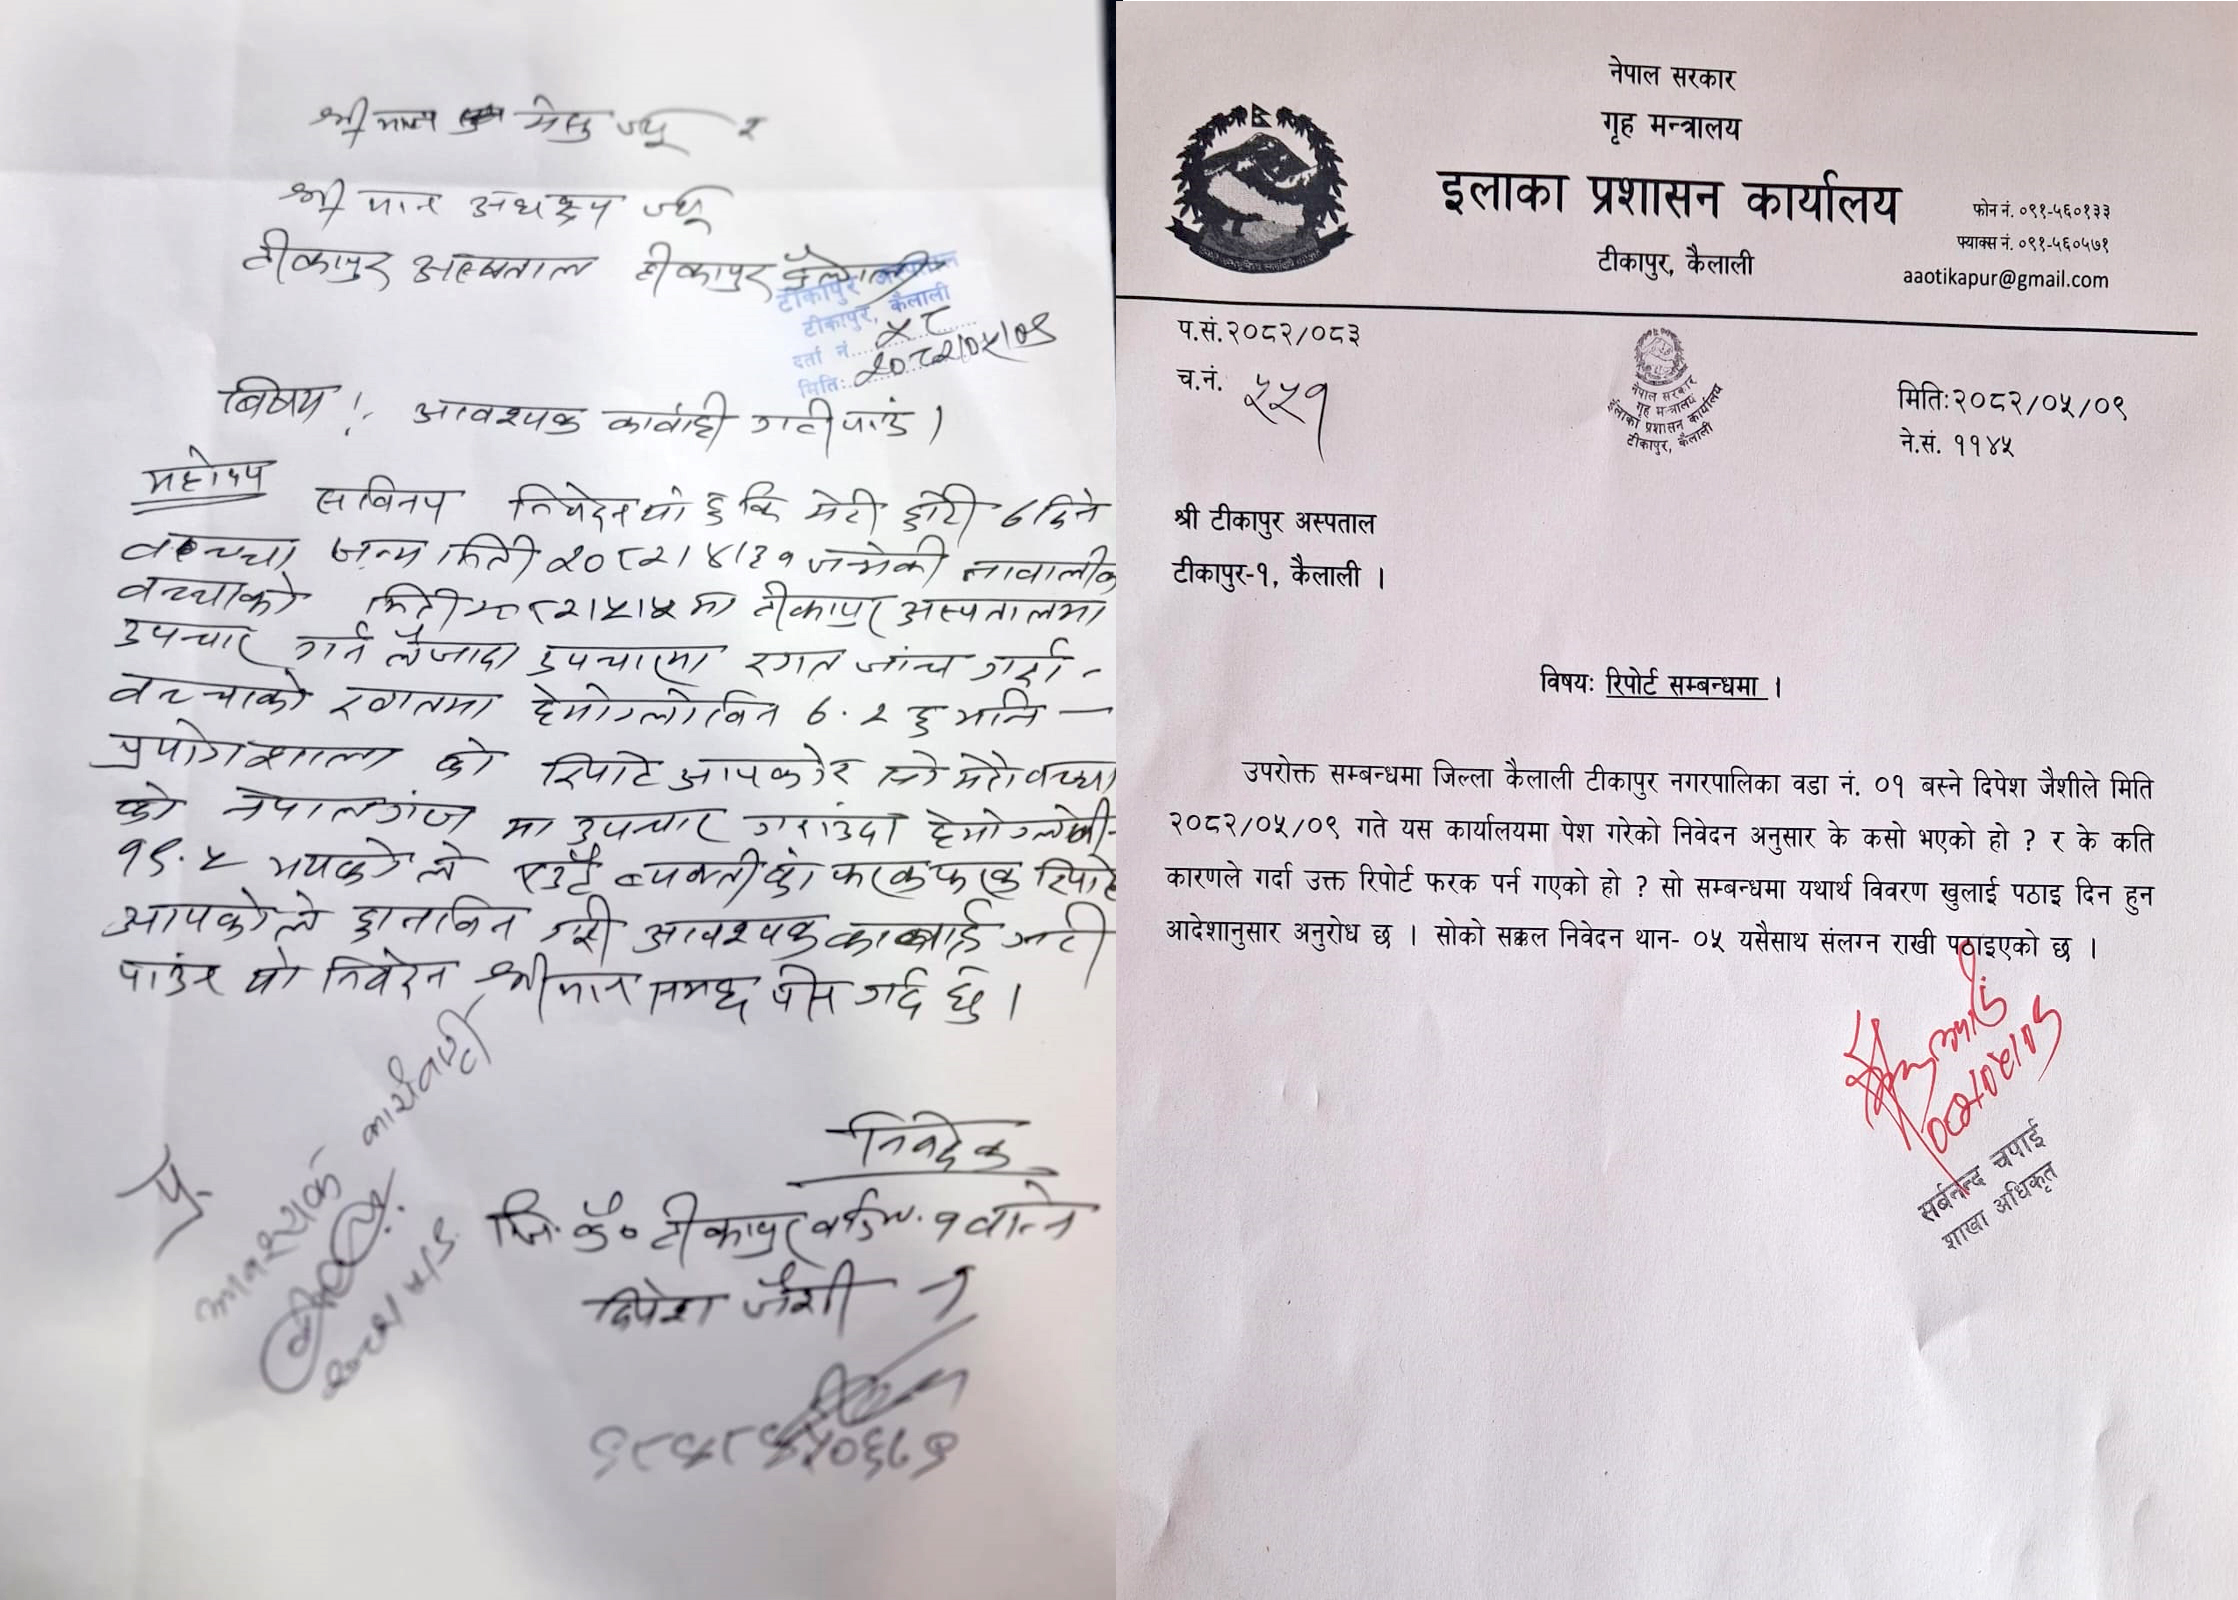 श्रीमान मेसु ज्यू र
श्रीमान अध्यक्ष ज्यू
टीकापुर अस्पताल टीकापुर कैलाली
टीकापुर अस्पताल
टीकापुर, कैलाली
दर्ता नं. ५८
मिति: २०८२/०५/०९
बिषय ! आवश्यक कार्वाही गरी पाउं ।
महोदय
सविनय निवेदन यो छ कि मेरी छोरी ६ दिने
वच्चा जन्म मिती २०८२।४।३१ जन्मेकी नावालीक
वच्चाको मिती २०८२।५।५ मा टीकापुर अस्पतालमा
उपचार गर्न लैजादा उपचारमा रगत जांच गर्दा -
वच्चाको रगतमा हेमोग्लोविन ६.२ छ भनि -
प्रयोगशाला को रिपोर्ट आएकोर सो मेरो वच्चा
को नेपालगंज मा उपचार गराउंदा हेमोग्लोवी-
१९.५ भएकोले एउटै व्यक्ती को फरक फरक रिपोर्ट
आएकोले छानविन गरी आवश्यक कारवाई गरी
पाउन यो निवेदन श्रीमान समक्ष पेस गर्दछु ।
आवश्यक कार्यवाही
निवेदक
जि. कै० टीकापुर वडा नं. १ वस्ने
दिपेश जैशी
नेपाल सरकार
गृह मन्त्रालय
इलाका प्रशासन कार्यालय
टीकापुर, कैलाली
फोन नं. ०९१-५६०१३३
फ्याक्स नं. ०९१-५६०५७१
aaotikapur@gmail.com
प.सं.२०८२/०८३
च.नं. ५५१
नेपाल सरकार
गृह मन्त्रालय
ईलाका प्रशासन कार्यालय
टीकापुर, कैलाली
मितिः२०८२/०५/०९
ने.सं. ११४५
श्री टीकापुर अस्पताल
टीकापुर-१, कैलाली ।
विषयः रिपोर्ट सम्बन्धमा ।
उपरोक्त सम्बन्धमा जिल्ला कैलाली टीकापुर नगरपालिका वडा नं. ०१ बस्ने दिपेश जैशीले मिति
२०८२/०५/०९ गते यस कार्यालयमा पेश गरेको निवेदन अनुसार के कसो भएको हो ? र के कति
कारणले गर्दा उक्त रिपोर्ट फरक पर्न गएको हो ? सो सम्बन्धमा यथार्थ विवरण खुलाई पठाइ दिन हुन
आदेशानुसार अनुरोध छ । सोको सक्कल निवेदन थान- ०५ यसैसाथ संलग्न राखी पठाइएको छ ।
२०८२।०५।०९
सर्बनन्द चपाई
शाखा अधिकृत